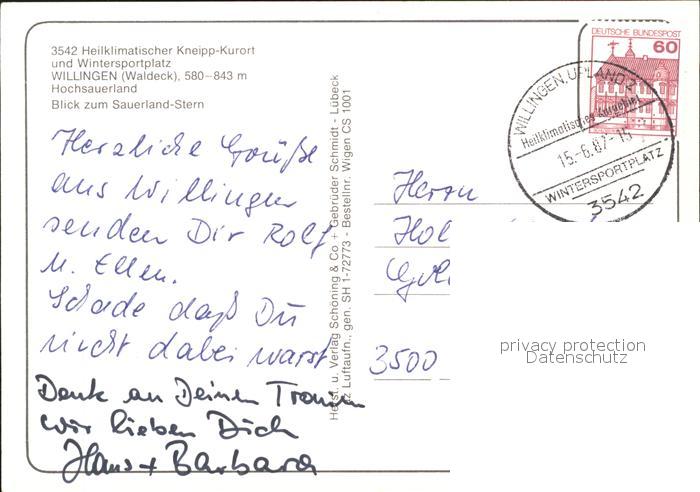 3542 Heilklimatischer Kneipp-Kurort
und Wintersportplatz
WILLINGEN (Waldeck), 580–843 m
Hochsauerland
Blick zum Sauerland-Stern
Herzliche Grüße
aus Willingen
senden Dir Rolf
u. Ellen.
Schade daß Du
nicht dabei warst
Denk an Deinen
wir lieben Dich
Hans + Barbara
Herst. u. Verlag Schöning & Co + Gebrüder Schmidt - Lübeck
Luftaufn., gen. SH 1-72773 - Bestellnr. Wigen CS 1001
DEUTSCHE BUNDESPOST
60
WILLINGEN, UPLAND 2
Heilklimatisches Kurgebiet
15.-6.87-15
WINTERSPORTPLATZ
3542
Herrn
Hol
3500
privacy protection
Datenschutz